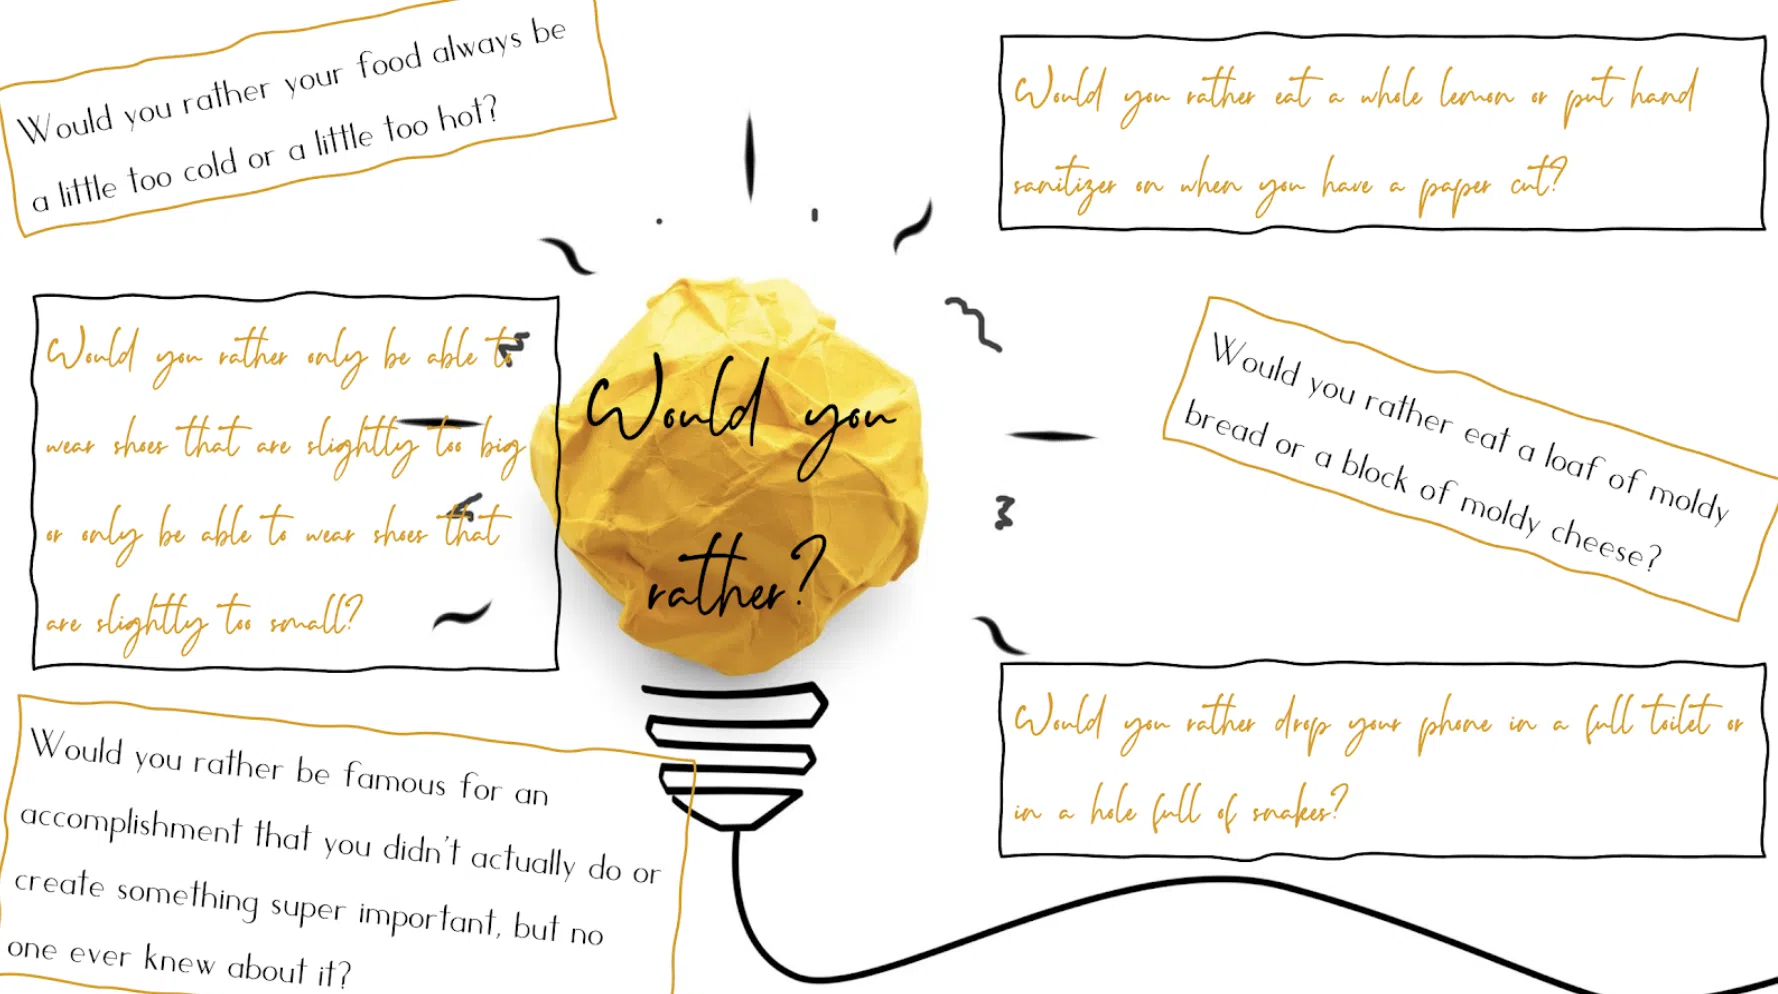 Would you rather your food always be
a little too cold or a little too hot?
Would you rather eat a whole lemon or put hand
sanitizer on when you have a paper cut?
Would you rather only be able to
wear shoes that are slightly too big
or only be able to wear shoes that
are slightly too small?
Would you
rather?
Would you rather eat a loaf of moldy
bread or a block of moldy cheese?
Would you rather be famous for an
accomplishment that you didn't actually do or
create something super important, but no
one ever knew about it?
Would you rather drop your phone in a full toilet or
in a hole full of snakes?